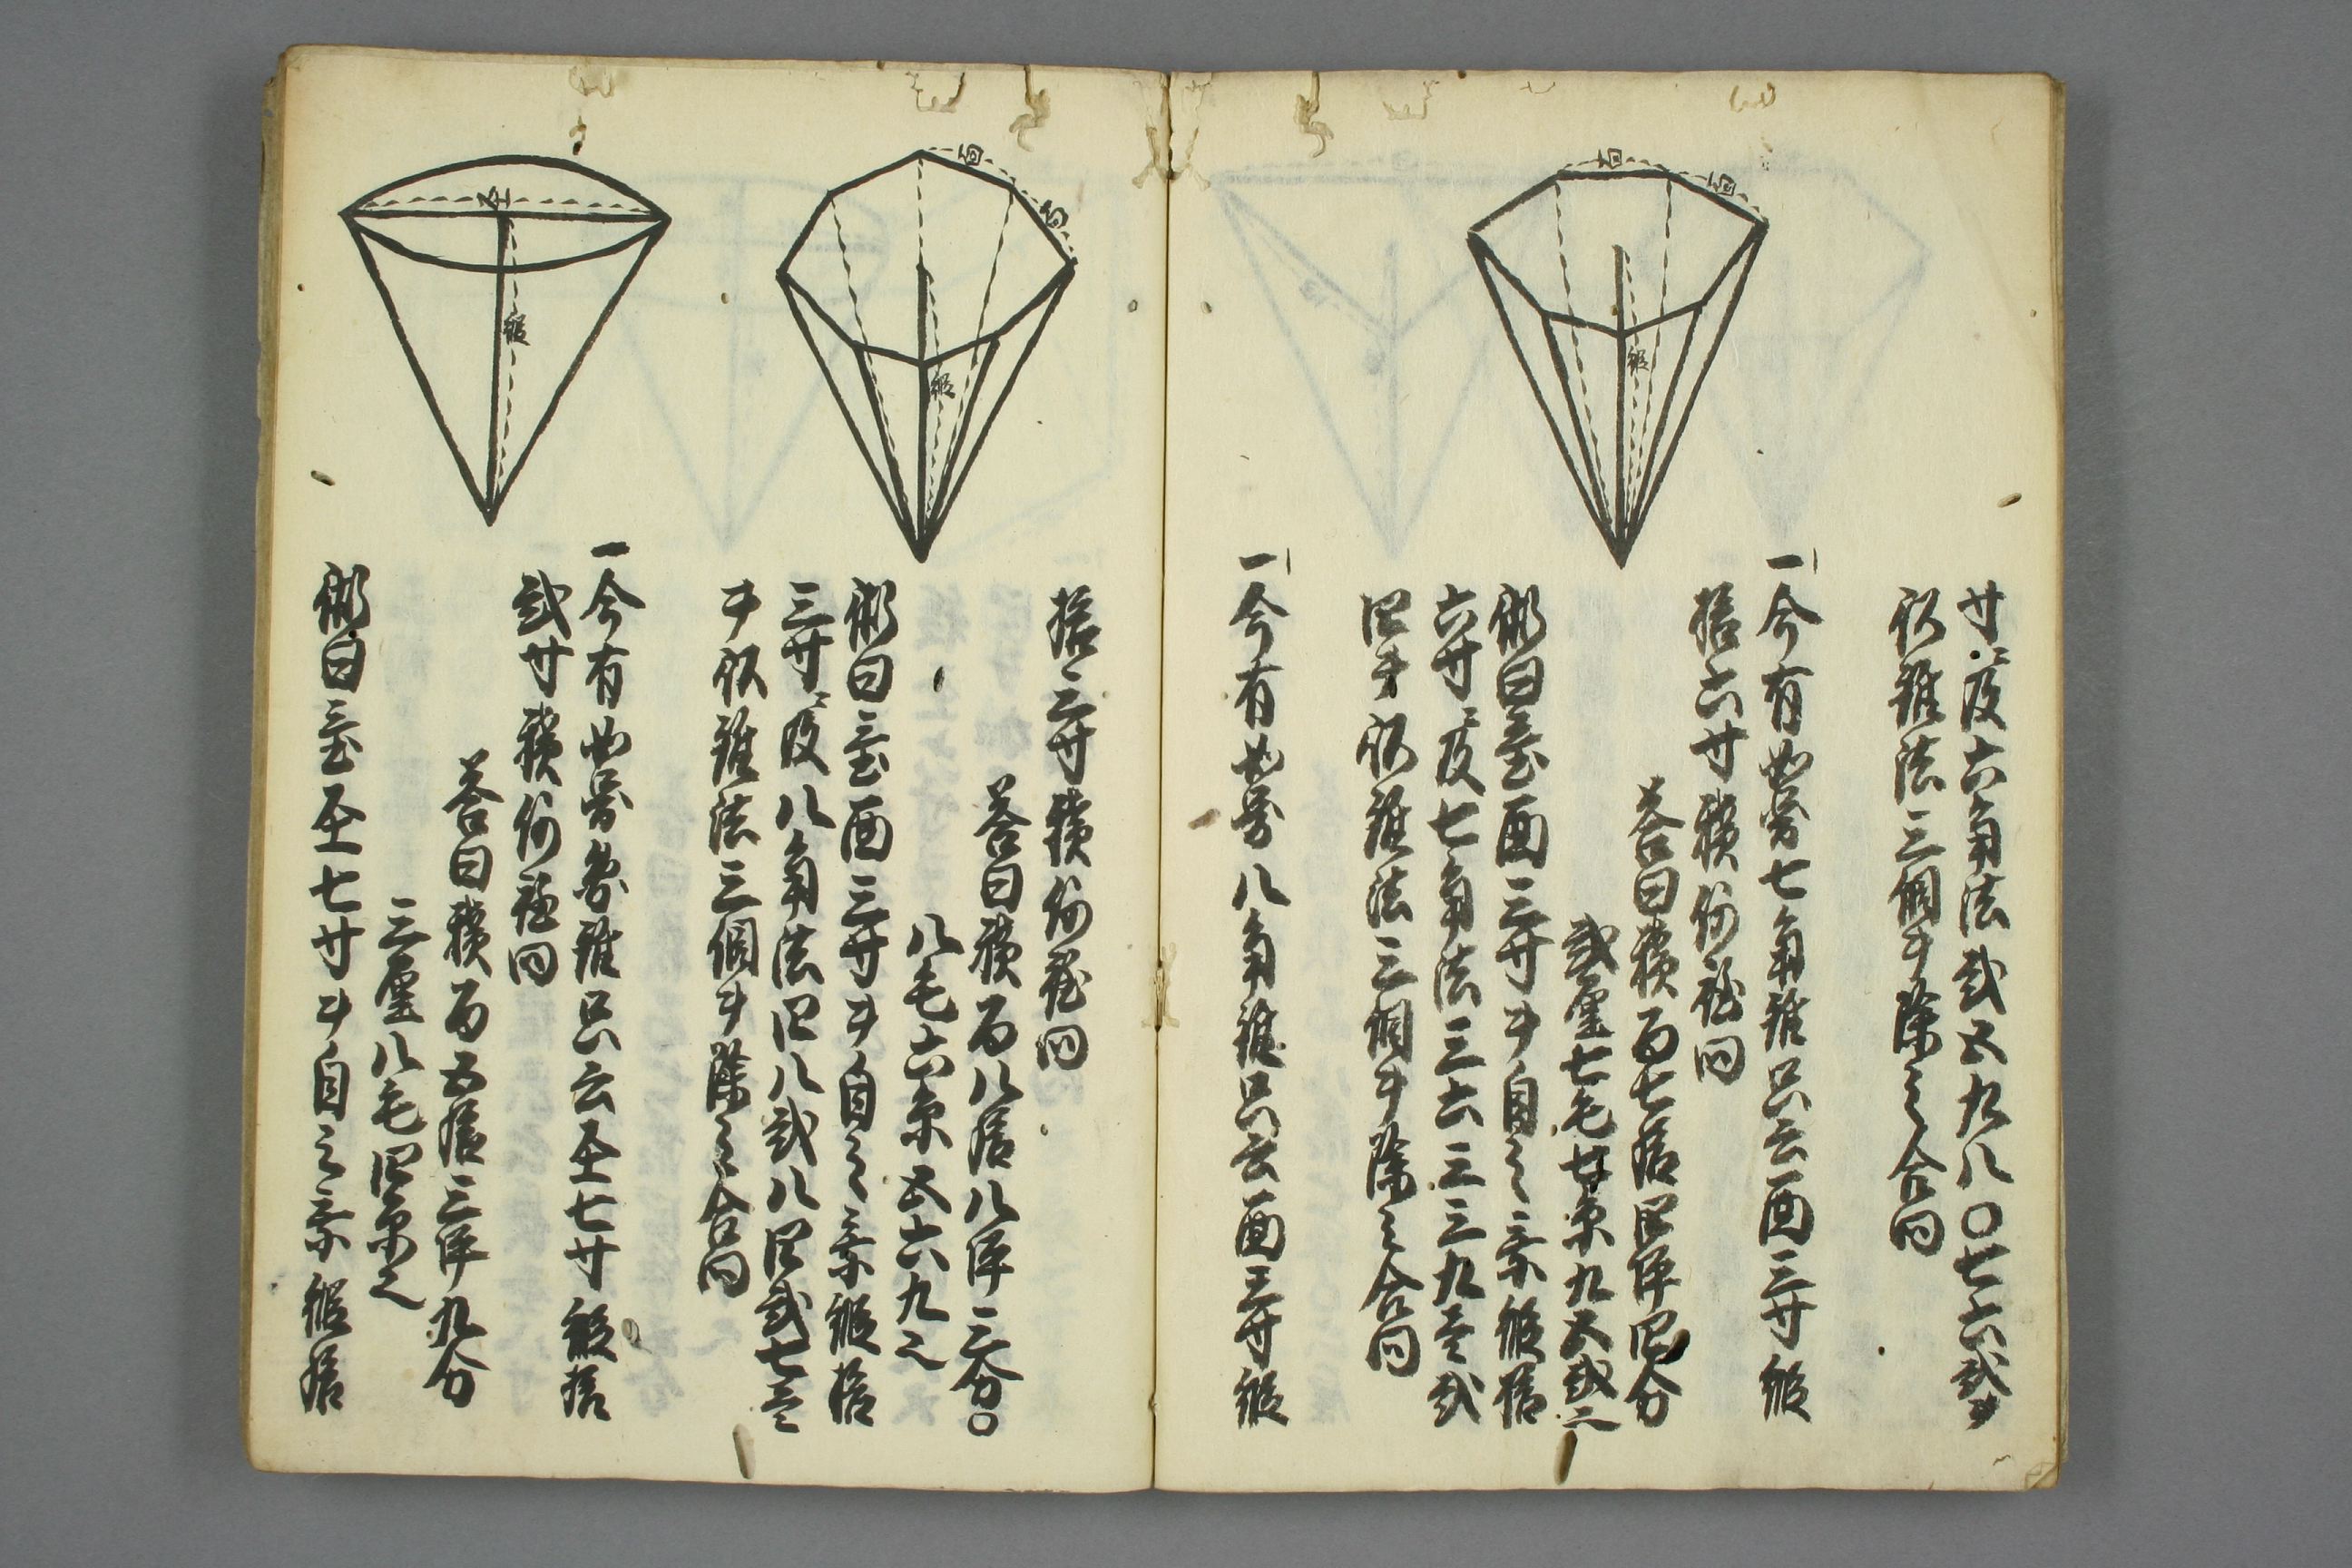 寸ニ及六角法弐五九八〇七六弐ヲ
以錐法三個ヲ除之合問
一今有如図七角錐只云面三寸縦
拾六寸積何程問
答曰積百七拾四坪四分
弐厘七毛七糸九五弐也
術曰置面三寸ヲ自之乗縦拾
六寸ニ及七角法三六三三九壱弐
四ヲ以錐法三個ヲ除之合問
一今有如図八角錐只云面三寸縦
面
面
縦
拾三寸積何程問
答曰積百八拾八坪三分〇
八毛六糸五六九也
術曰置面三寸ヲ自之乗縦拾
三寸ニ及八角法四八弐八四弐七壱
ヲ以錐法三個ヲ除之合問
一今有如図円錐只云圣七寸縦拾
弐寸積何程問
答曰積百五拾三坪九分
三厘八毛四糸也
術曰置圣七寸ヲ自之乗縦拾
面
面
縦
圣
縦